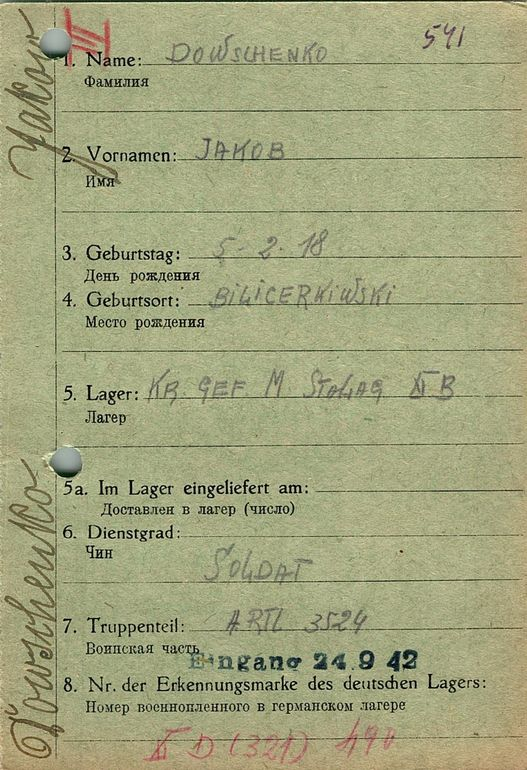 III
541
1. Name: DOWSCHENKO
Фамилия
2. Vornamen: JAKOB
Имя
3. Geburtstag: 5-2-18
День рождения
4. Geburtsort: BILICERKIWSKI
Место рождения
5. Lager: KR. GEF M STALAG XI B
Лагер
5a. Im Lager eingeliefert am:
Доставлен в лагер (число)
6. Dienstgrad:
Чин
SOLDAT
7. Truppenteil: ARTL 3524
Воинская часть
Eingang 24. 9 42
8. Nr. der Erkennungsmarke des deutschen Lagers:
Номер военнопленного в германском лагере
XI D (321) 490
Dowschenko Jakow